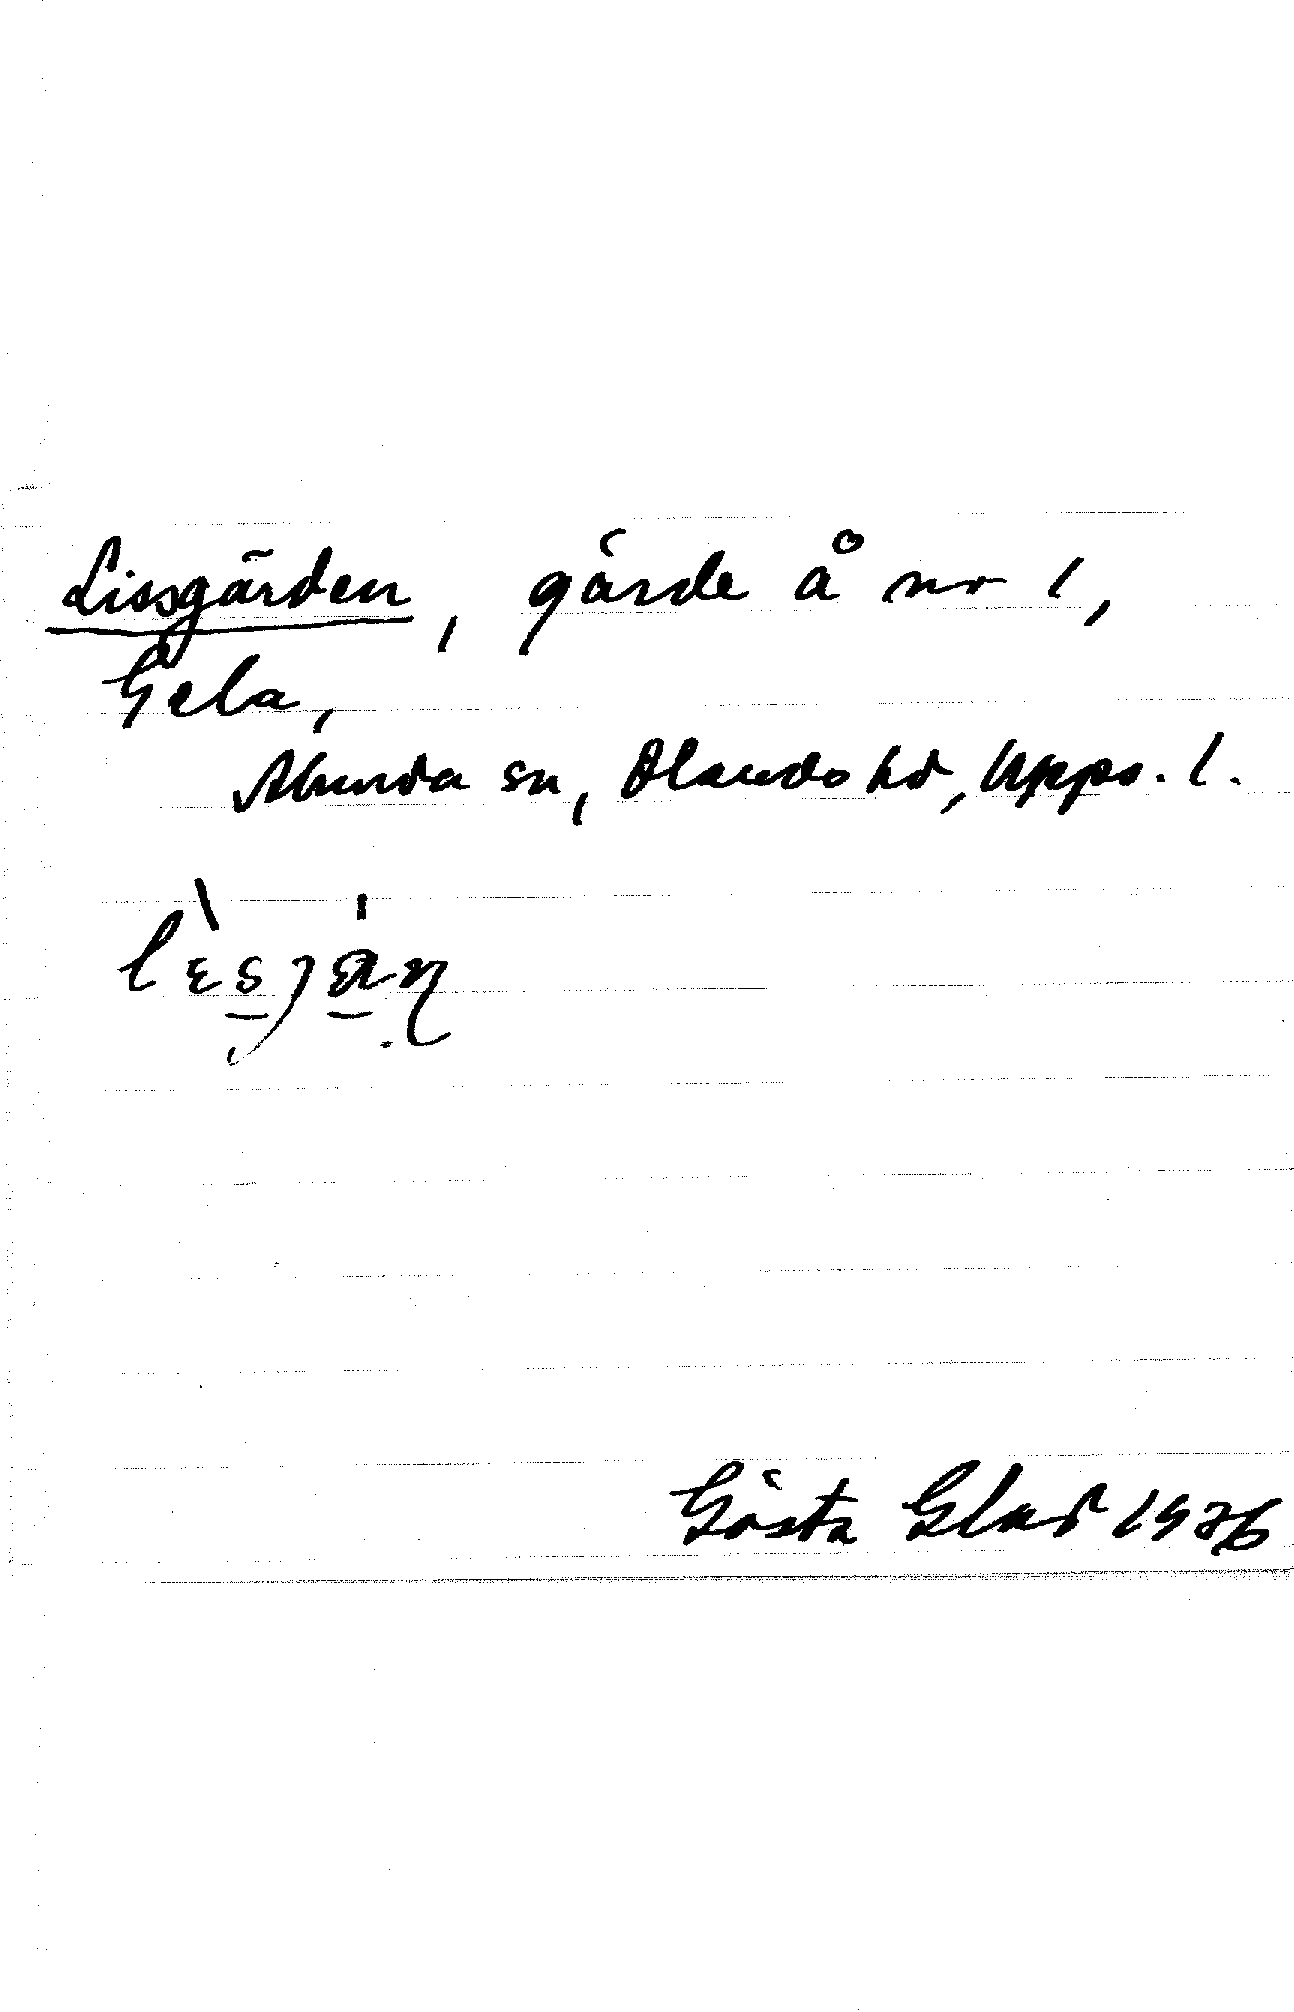 Lissgärden, gärde å nr 1,
Gela,
Alunda sn, Olands hd, Upps. l.
Gösta Glad 1976